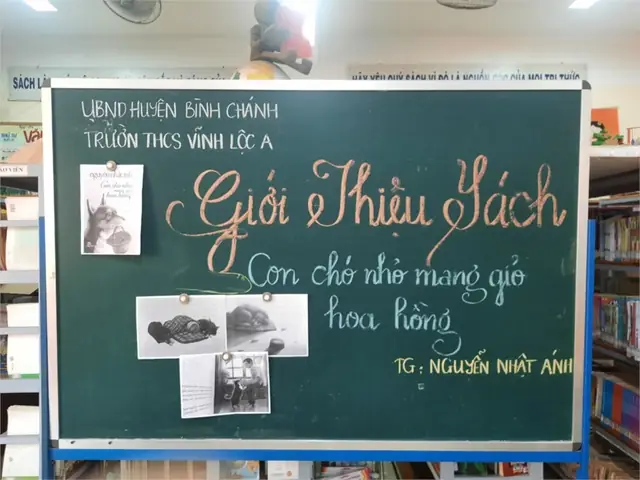 HÃY YÊU QUÝ SÁCH VÌ ĐÓ LÀ NGUỒN GỐC CỦA MỌI TRI THỨC
UBND HUYỆN BÌNH CHÁNH
TRƯỜN THCS VĨNH LỘC A
nguyễn nhật ánh
Con chó nhỏ
mang giỏ
hoa hồng
Giới Thiệu Sách
Con chó nhỏ mang giỏ
hoa hồng
TG: NGUYỄN NHẬT ÁNH